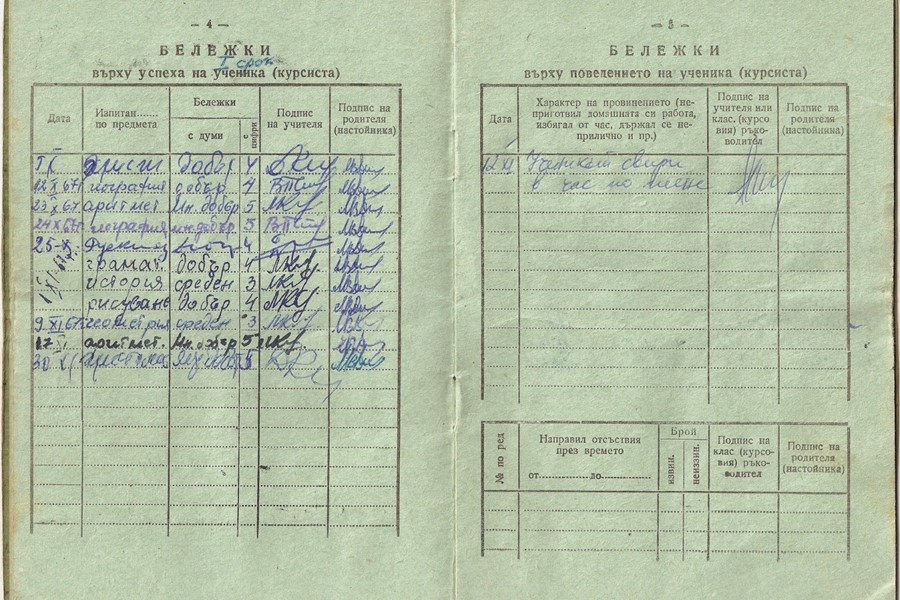 — 4 —
БЕЛЕЖКИ
I срок
върху успеха на ученика (курсиста)
Дата
Изпитан......
по предмета
Бележки
с думи
с цифри
Подпис
на учителя
Подпис на
родителя
(настойника)
добър 4
12 X 67 география добър 4
23 X 67 аритмет. Мн. добър 5
24 X 67 география мн. добър 5
25-X- Руски 4
грамат. добър 4
история среден 3
рисуване добър 4
9 XI 67 геометрия среден 3
17 аритмет. Мн. добър 5
30 XI 5
— 5 —
БЕЛЕЖКИ
върху поведението на ученика (курсиста)
Дата
Характер на провинението (не-
приготвил домашната си работа,
избягал от час, държал се не-
прилично и пр.)
Подпис на
учителя или
клас. (курсо
вия) ръко-
водител
Подпис на
родителя
(настойника)
12 XI Ученикът свири
в час по пеене
№ по ред
Направил отсъствия
през времето
от............до............
Брой
извин.
неизвин.
Подпис на
клас (курсо-
вия) ръко-
водител
Подпис на
родителя
(настойника)